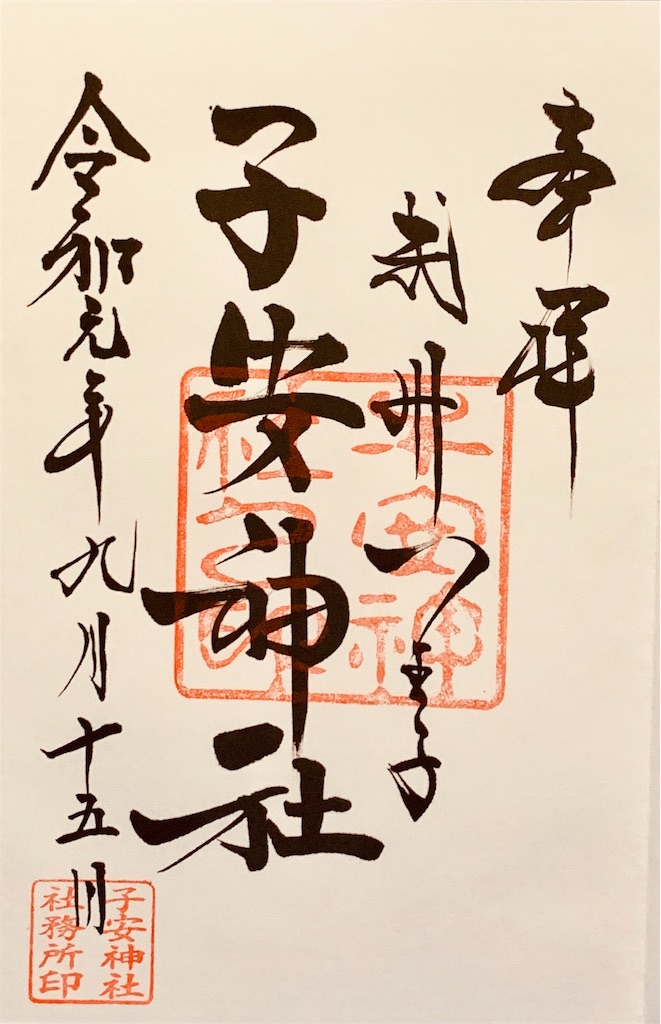 奉拝
武州八王子
子安神社
令和元年九月十五日
子安神
社之印
子安神社
社務所印